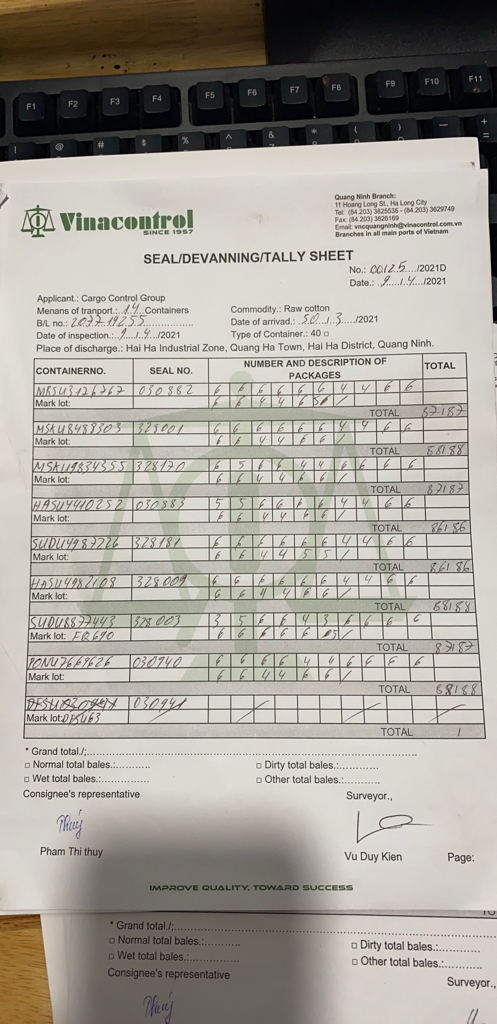 F1 F2 F3 F4 F5 F6 F7 F8 F9 F10 F11
! @ # $ % ^ & * ( ) — + =
Vinacontrol
SINCE 1957
Quang Ninh Branch:
11 Hoang Long St., Ha Long City
Tel: (84.203) 3825535 - (84.203) 3629749
Fax: (84.203) 3826169
Email: vncquangninh@vinacontrol.com.vn
Branches in all main ports of Vietnam
SEAL/DEVANNING/TALLY SHEET
No.: 00125 /2021D
Date.: 9/4/2021
Applicant.: Cargo Control Group
Menans of tranport.: 14 Containers
Commodity.: Raw cotton
B/L no.: 2077 19255
Date of arrival.: 30/3/2021
Date of inspection.: 9/4/2021
Type of Container.: 40 □
Place of discharge.: Hai Ha Industrial Zone, Quang Ha Town, Hai Ha District, Quang Ninh.
CONTAINERNO. SEAL NO. NUMBER AND DESCRIPTION OF PACKAGES TOTAL
MRSU3126767 030882 6 6 6 6 6 6 4 4 6 6
Mark lot: 6 6 4 4 6 /
TOTAL 87 187
MSKU8483303 328001 6 6 6 6 6 6 4 4 6 6
Mark lot: 6 6 4 4 6 6 /
TOTAL 88 188
MSKU9834355 328170 6 5 6 6 4 4 6 6 6 6
Mark lot: 6 6 4 4 6 6 /
TOTAL 87 187
HASU4410252 030883 5 5 6 6 6 6 4 4 6 6
Mark lot: 6 6 4 4 6 6 /
TOTAL 86 186
SUDU4987726 328181 6 6 6 6 6 6 4 4 6 6
Mark lot: 6 6 4 4 5 5 /
TOTAL 86 186
HASU4982108 328009 6 6 6 6 6 6 4 4 6 6
Mark lot: 6 6 4 4 6 6 /
TOTAL 88 188
SUDU8877443 328003 3 5 6 6 4 3 6 6 6 6
Mark lot: EQ690 6 6 6 6 6 /
TOTAL 87 187
PONU7669626 030940 6 6 6 6 4 4 6 6 6 6
Mark lot: 6 6 4 4 6 6 /
TOTAL 88 188
030941
Mark lot:
TOTAL /
* Grand total./:
□ Normal total bales.: □ Dirty total bales.:
□ Wet total bales.: □ Other total bales.:
Consignee's representative Surveyor.,
Thuý
Pham Thi thuy Vu Duy Kien Page:
IMPROVE QUALITY, TOWARD SUCCESS
* Grand total./:
□ Normal total bales.: □ Dirty total bales.:
□ Wet total bales.: □ Other total bales.:
Consignee's representative Surveyor.,
Thuý